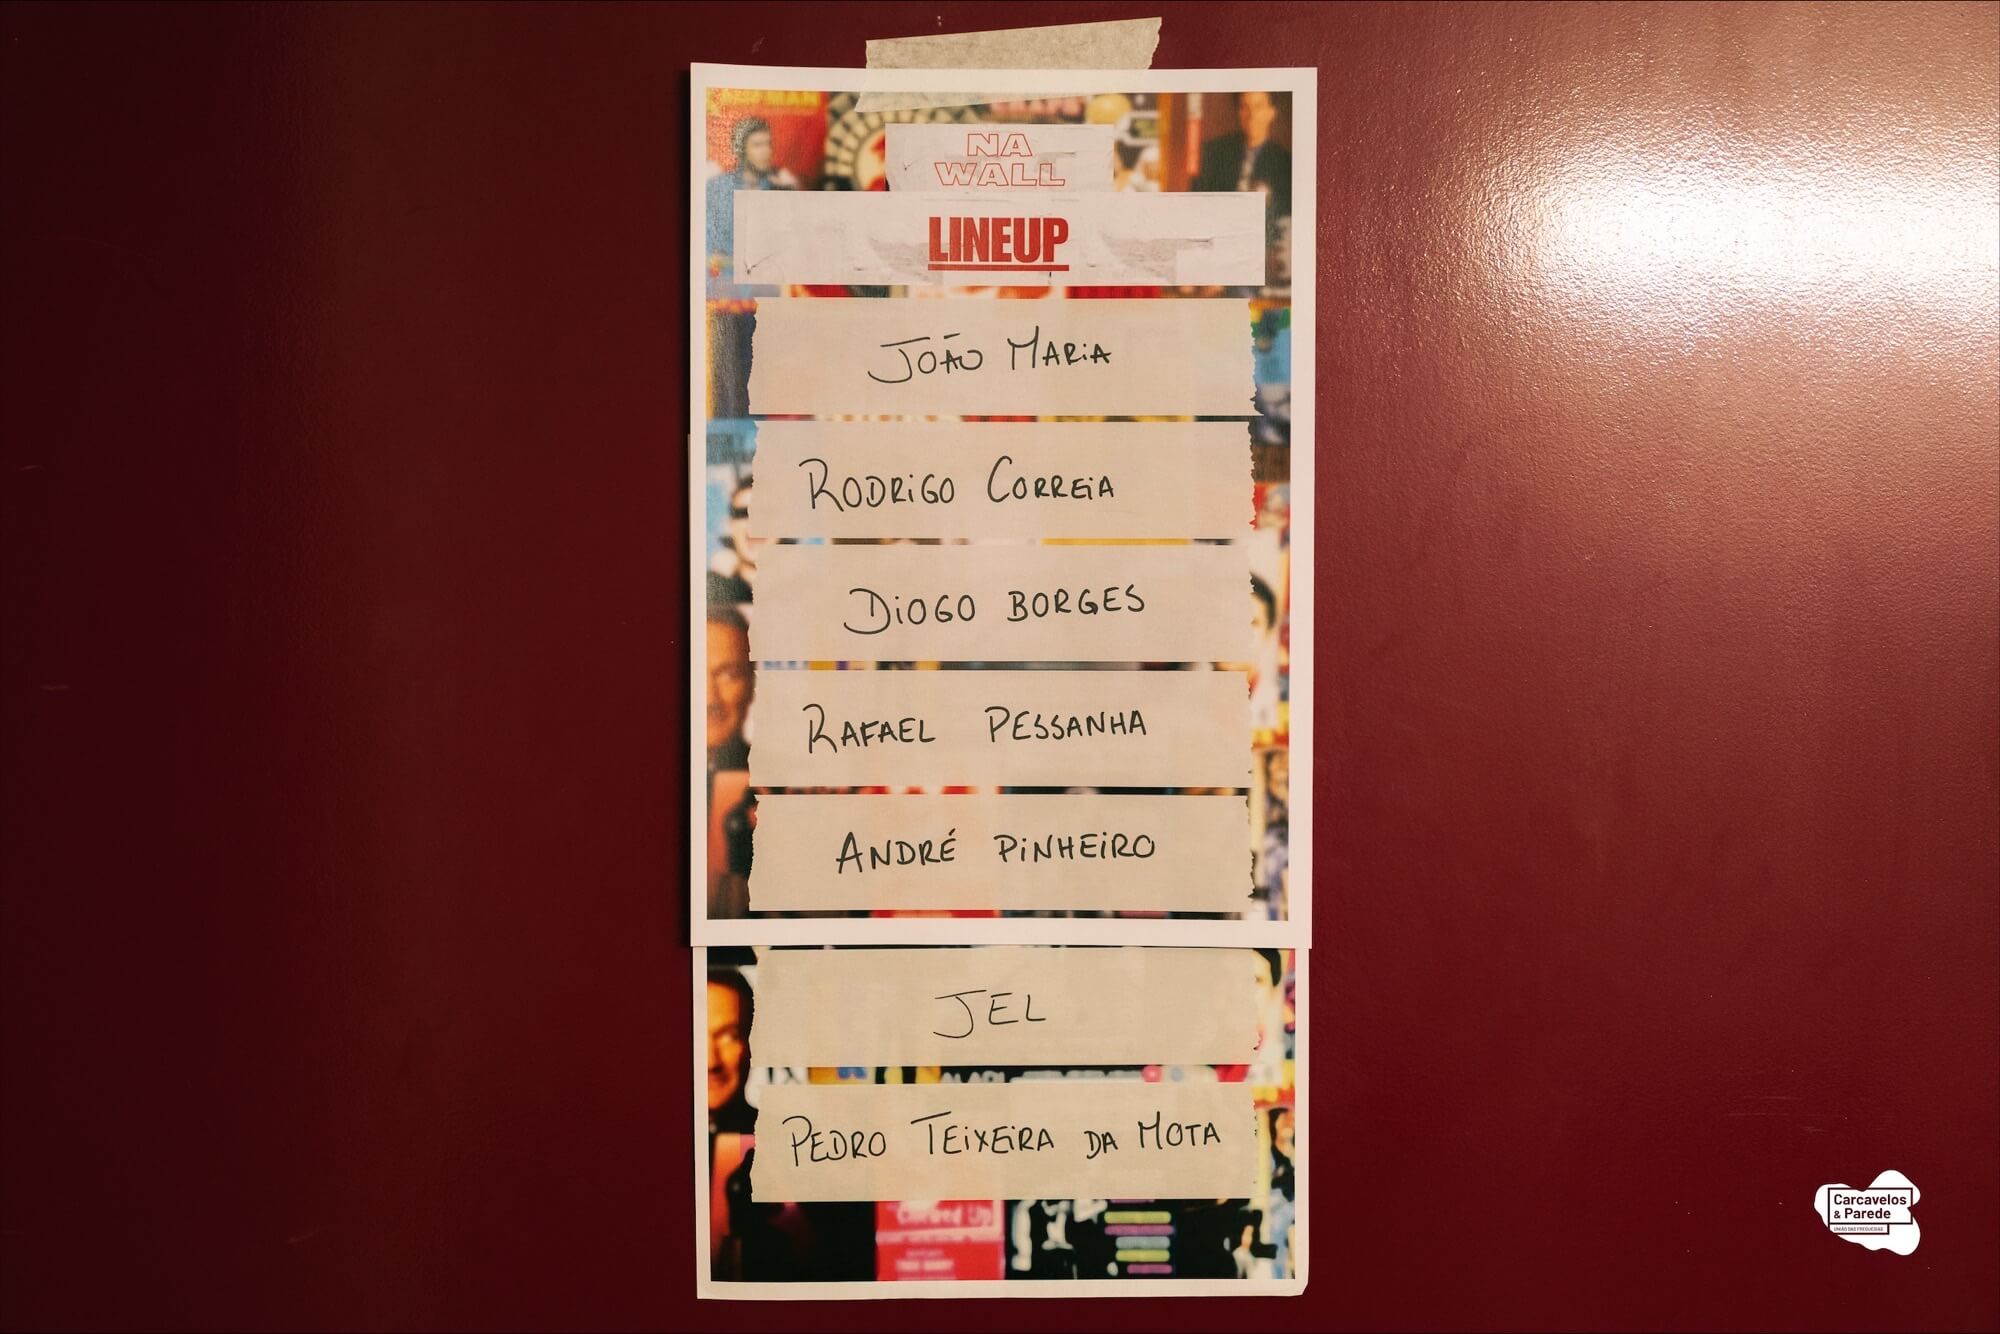 NA
WALL
LINEUP
JOÃO MARIA
RODRIGO CORREIA
DIOGO BORGES
RAFAEL PESSANHA
ANDRÉ PINHEIRO
JEL
PEDRO TEIXEIRA DA MOTA
Carcavelos
& Parede
UNIÃO DAS FREGUESIAS